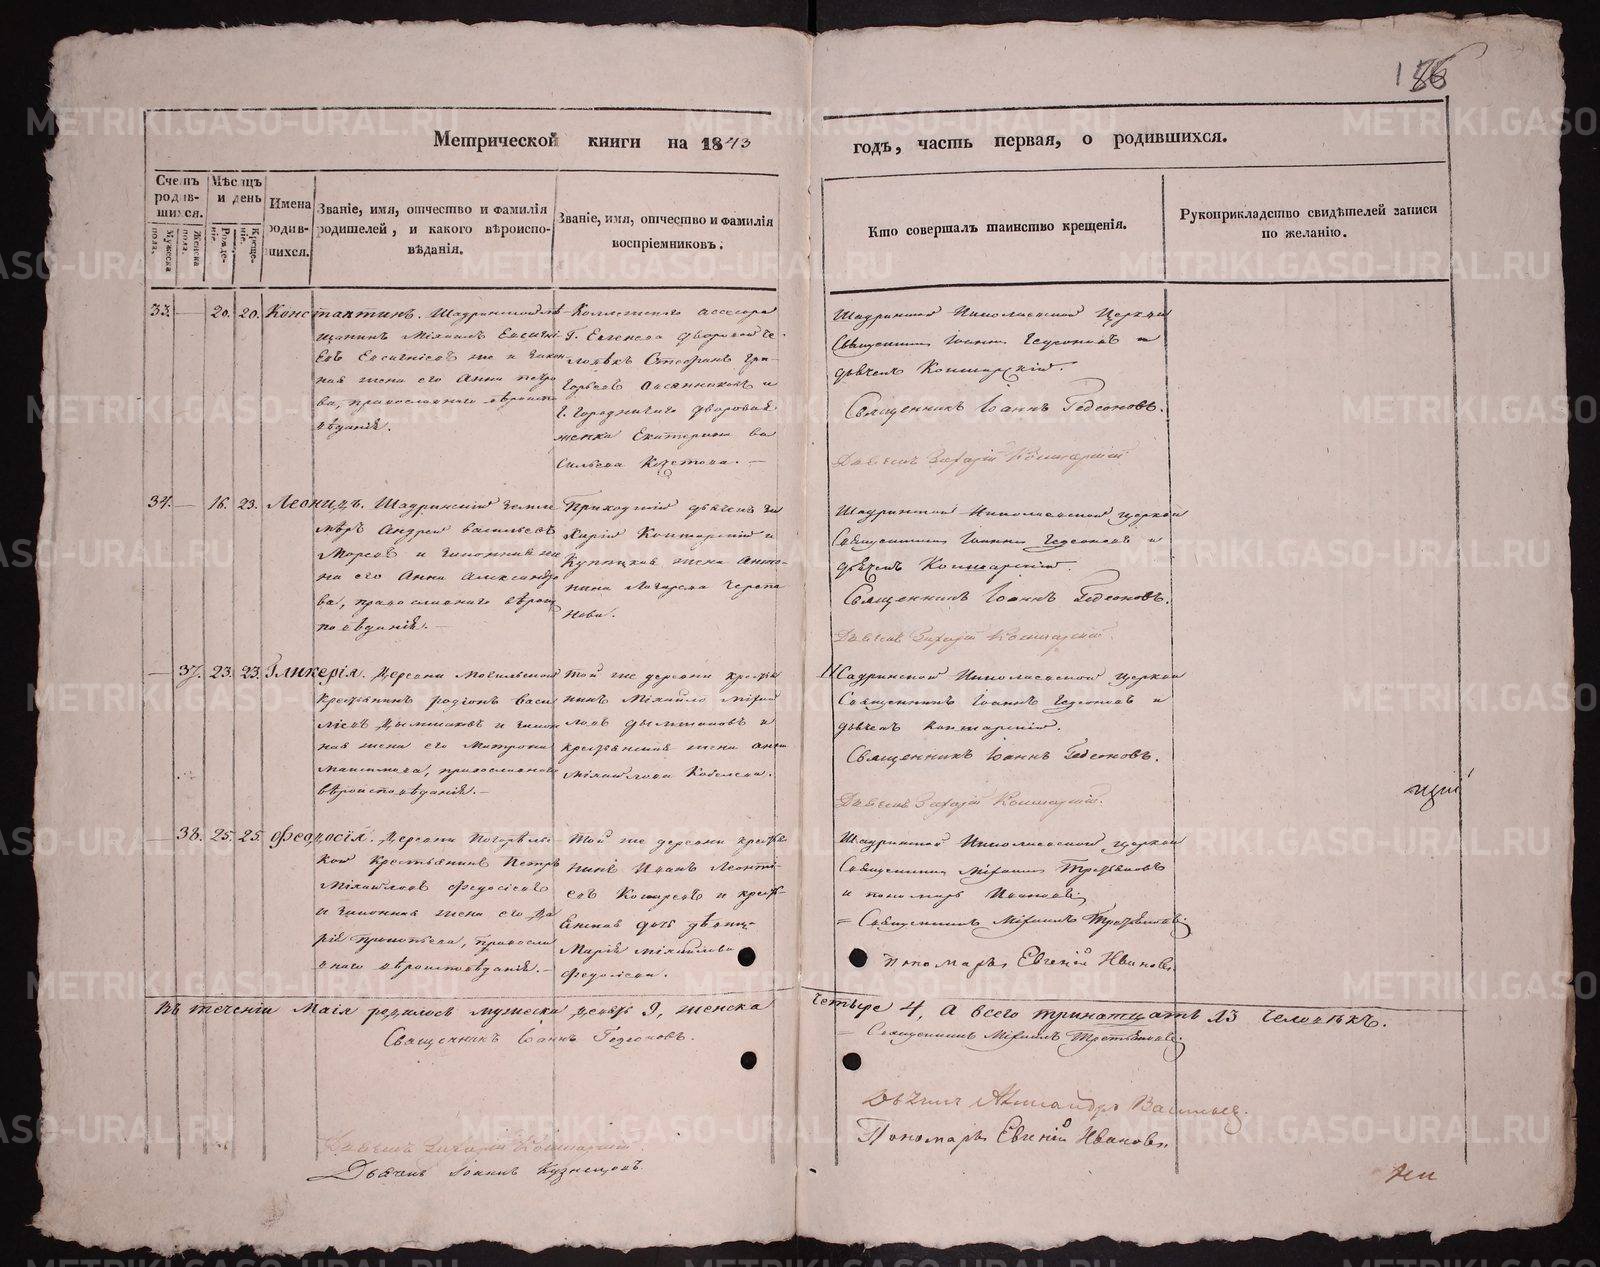 186
Метрической книги на 1843
годъ, часть первая, о родившихся.
Счетъ родившихся.
Мужеска пола.
Женска пола.
Мѣсяцъ и день
Рожденія.
Крещенія.
Имена родившихся.
Званіе, имя, отчество и фамилія
родителей, и какого вѣроиспо-
вѣданія.
Званіе, имя, отчество и фамилія
воспріемниковъ.
Кто совершалъ таинство крещенія.
Рукоприкладство свидѣтелей записи
по желанію.
33. — 20. 20. Константинъ. Шадринской мѣ
щанинъ Михаилъ Евсигні
евъ Евсигніевъ же и закон
ная жена его Анна Петро
ва, православнаго вѣроиспо
вѣданія.
Коллежскаго ассесора
Г. Евгенева дворовой че-
ловѣкъ Стефанъ Гри-
горьевъ Овсянниковъ и
г. Городничаго дворовая
женка Екатерина Ва
сильева —
Шадринской Николаевской Церкви
Священникъ Іоаннъ Гедеоновъ и
дьячекъ Кошчарскій.
Священникъ Іоаннъ Гедеоновъ.
Дьячекъ Захарій
34. — 16. 23. Леонидъ. Шадринскій земле
мѣръ Андрей Васильевъ
и законная же
на его Анна Александро
ва, православнаго вѣроис
повѣданія. —
Приходскій дьячекъ За
харій и
Купецкая жена Анто-
нина Лазарева Черепа
нова.
Шадринской Николаевской церкви
Священникъ Іоаннъ Гедеоновъ и
дьячекъ
Священникъ Іоаннъ Гедеоновъ.
Дьячекъ Захарій
— 37. 23. 23. Гликерія. Деревни Могильской
крестьянинъ Родіонъ Васи
льевъ и закон
ная жена его Матрона
Максимова, православнаго
вѣроисповѣданія. —
Той же деревни кресть
янинъ Михайло Михай
ловъ и
крестьянская жена Анна
Михайлова Кобелева.
Шадринской Николаевской церкви
Священникъ Іоаннъ Гедеоновъ и
дьячекъ
Священникъ Іоаннъ Гедеоновъ.
Дьячекъ Захарій
— 38. 25. 25. Феодосія. Деревни Погорѣль
ской крестьянинъ Петръ
Михайловъ Федосѣевъ
и законная жена его Да
рія Прокопьева, правосла
внаго вѣроисповѣданія. —
Той же деревни кресть
янинъ Иванъ Леонті
евъ и кресть-
янская дочь дѣвица
Марія Михайлова
Федосѣева.
Шадринской Николаевской церкви
Священникъ Михаилъ Третьяковъ
и пономарь Ивановъ
= Священникъ Михаилъ Третьяковъ
Пономарь Евгеній Ивановъ
Въ теченіи Маія родилось мужеска девять 9, женска
четыре 4, а всего тринатцать 13 человѣкъ.
Священникъ Іоаннъ Гедеоновъ.
= Священникъ Михаилъ Третьяковъ
Дьячекъ Александръ
Пономарь Евгеній Ивановъ
Дьячекъ Захарій
Дьячекъ Іоаннъ Кузнецовъ.
METRIKI.GASO-URAL.RU